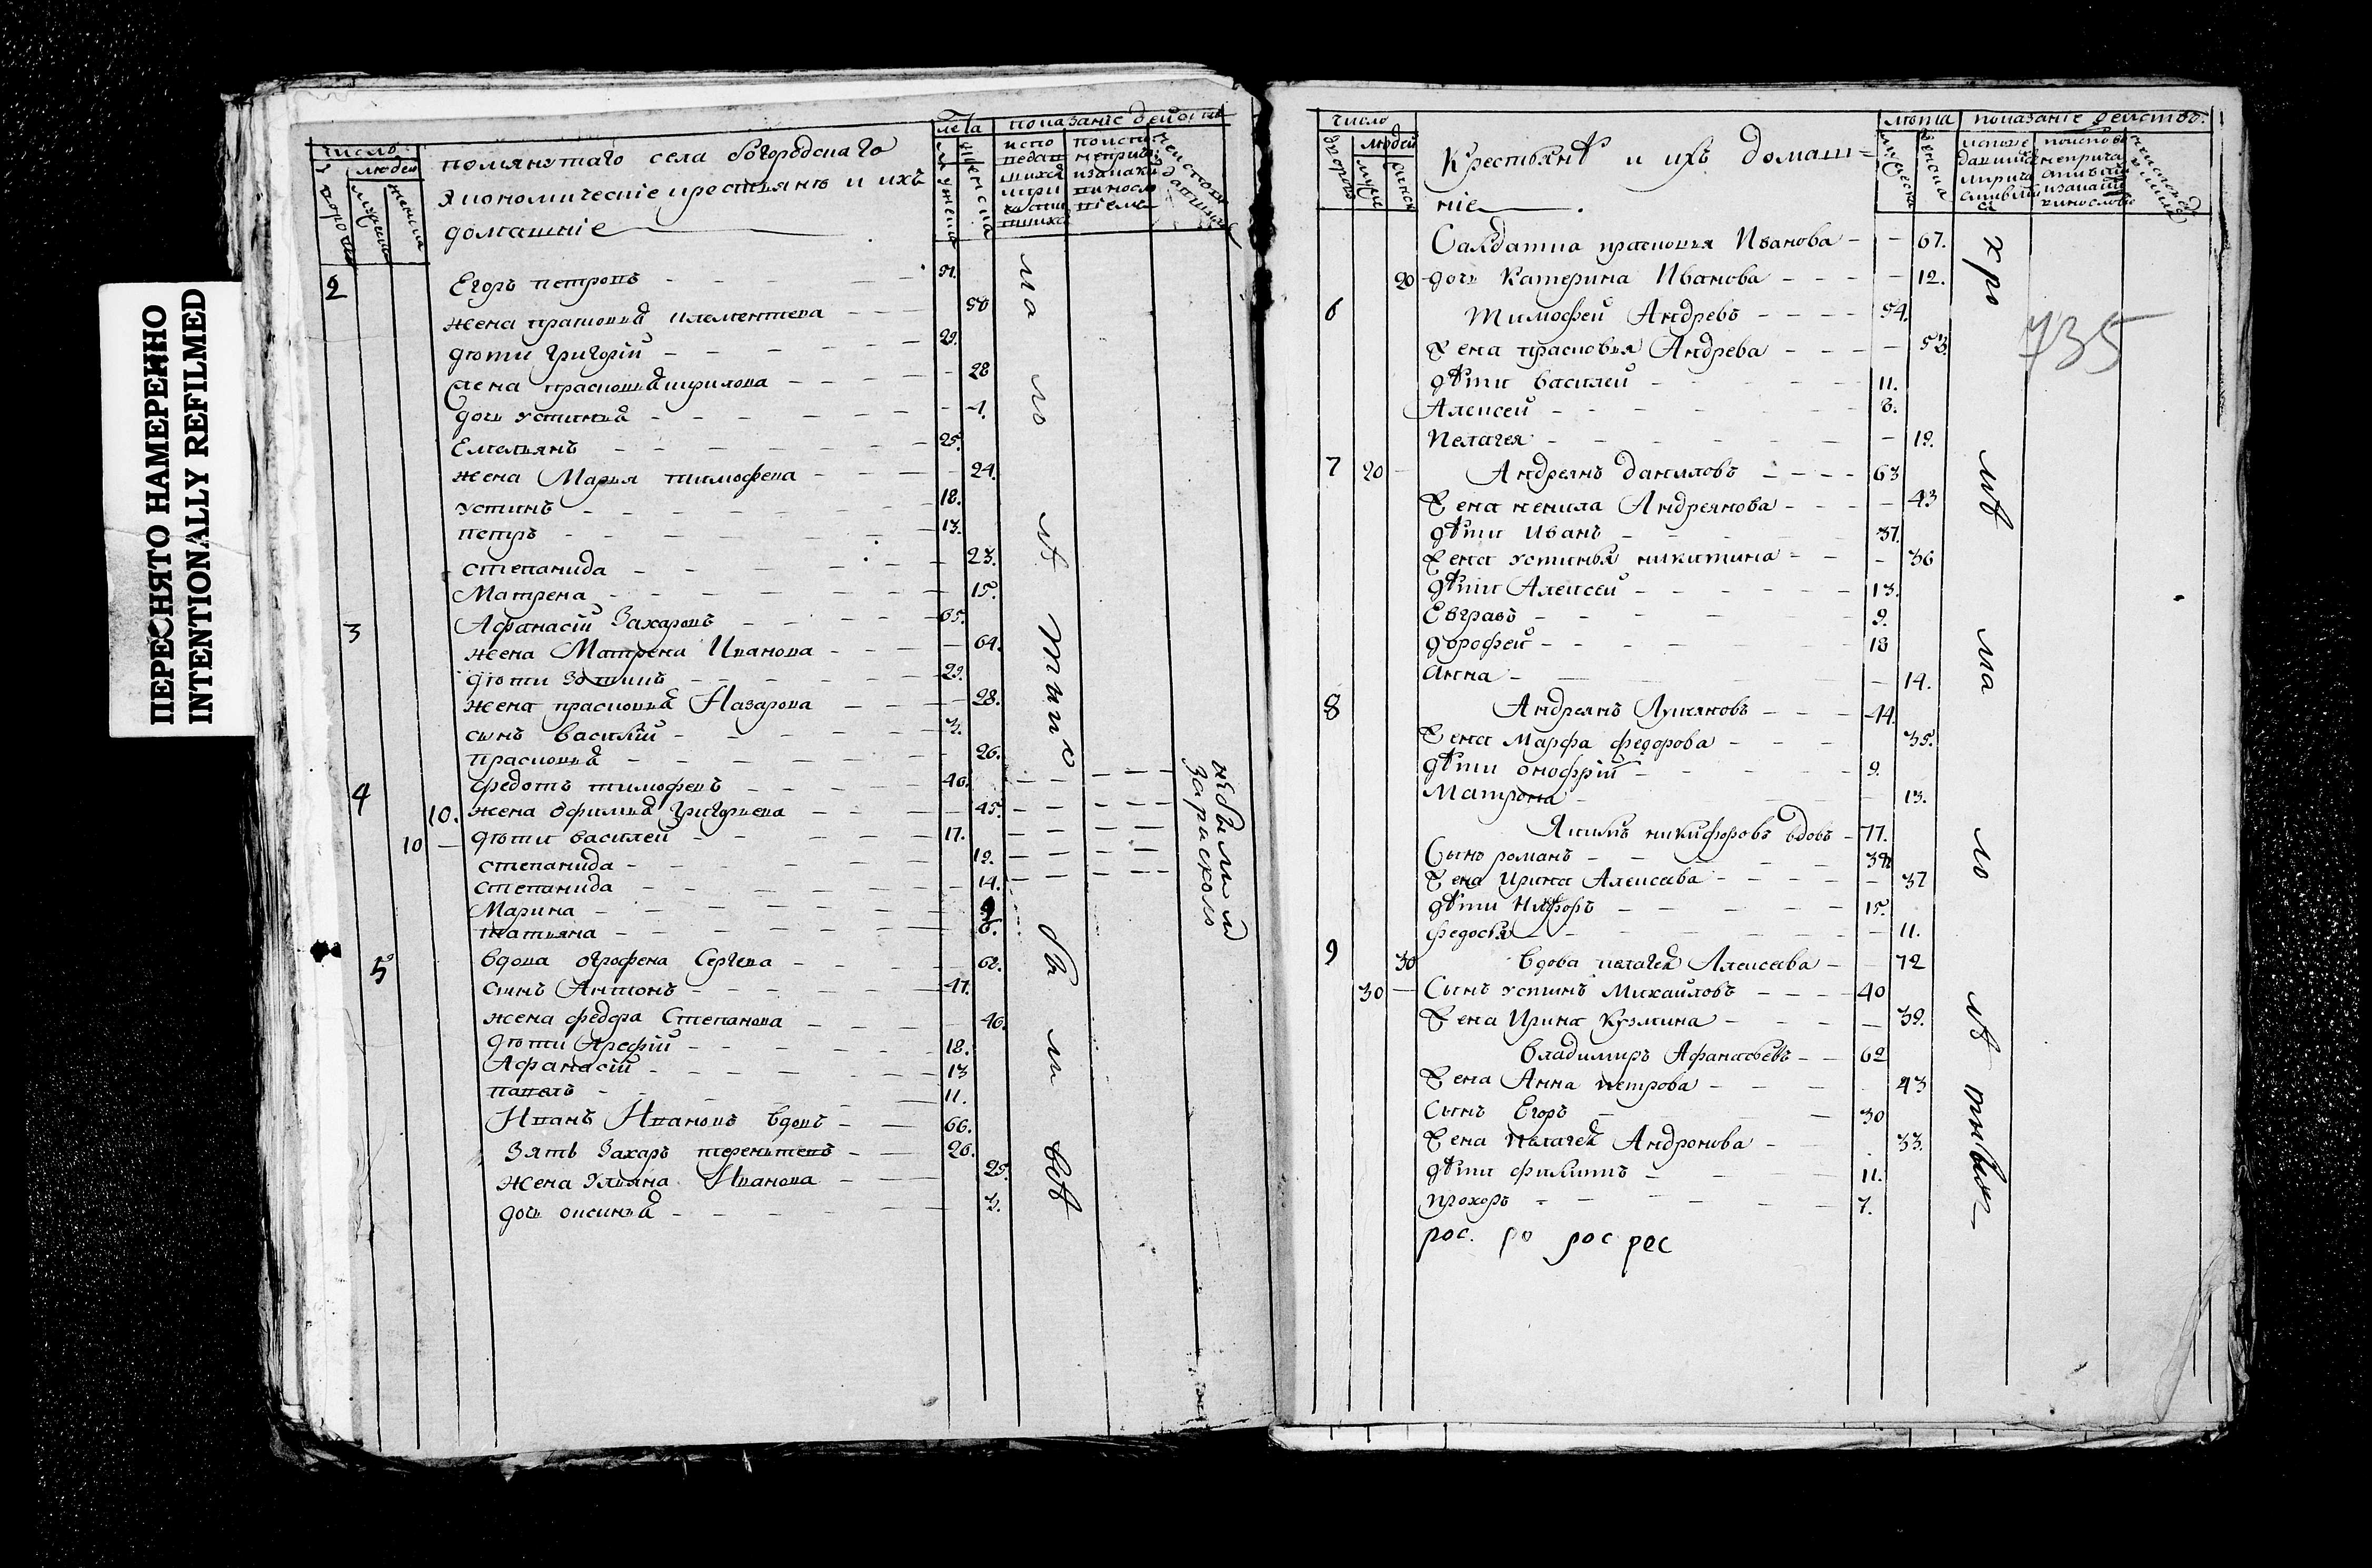 ПЕРЕСНЯТО НАМЕРЕННО
INTENTIONALLY REFILMED
число
людей
помянутаго села богородскаго
экономическіе крестьянъ и ихъ
домашніе
лета
показаніе действ
2 Егоръ петровъ 51.
жена прасковья клементева 50
дѣти григорій 29.
жена прасковья 28
дочь устинья 1.
Емельянъ 25.
жена Марья тимофева 24.
устинъ 18.
петръ 13.
степанида 23.
Матрена 15.
3 Афанасій Захаровъ 65.
жена Матрена Иванова 64.
дѣти Зотикъ 29.
жена прасковья Назарова 28.
сынъ василій 3.
прасковья 26.
4 федотъ тимофевъ 46.
10. жена офимья григорьева 45.
10 дѣти василей 17.
степанида 19.
степанида 14.
Марина 9
татьяна 6.
5 вдова огрофена Сергева 60.
сынъ Антонъ 47.
жена федора Степанова 46.
дѣти Арефій 18.
Афанасій 13
павелъ 11.
Иванъ Ивановъ вдовъ 66.
Зять Захаръ терентевъ 26.
жена Ульяна Иванова 25.
дочь оксинья 3.
не были
за расколъ
число
людей
Крестьянѣ и ихъ домаш=
ніе
лѣта
показаніе действъ
Салдатка прасковья Иванова 67.
20 дочь Катерина Иванова 12.
735
6 Тимофей Андревъ 54.
Жена прасковья Андрева 53.
дѣти василей 11.
Алексей 8.
Пелагея 19.
7 20 Андреянъ даниловъ 63
Жена ненила Андреянова 43
дѣти Иванъ 37.
Жена устинья никитина 36
дѣти Алексей 13.
Евграфъ 9.
дорофей 18
анна 14.
8 Андреянъ Лукяновъ 44.
Жена Марфа федорова 35.
дѣти онофрій 9.
Матрона 13.
Якимъ никифоровъ вдовъ 77.
Сынъ романъ 38
Жена Ирина Алексева 37
дѣти 15.
федосья 11.
9 30 вдова пелагея Алексева 72
30 Сынъ устинъ Михайловъ 40
Жена Ирина Кузмина 39.
владимиръ Афанасьевъ 62
Жена Анна петрова 43
Сынъ Егоръ 30
Жена пелагея Андронова 33.
дѣти филиппъ 11.
прохоръ 7.
рос. ро рос рес